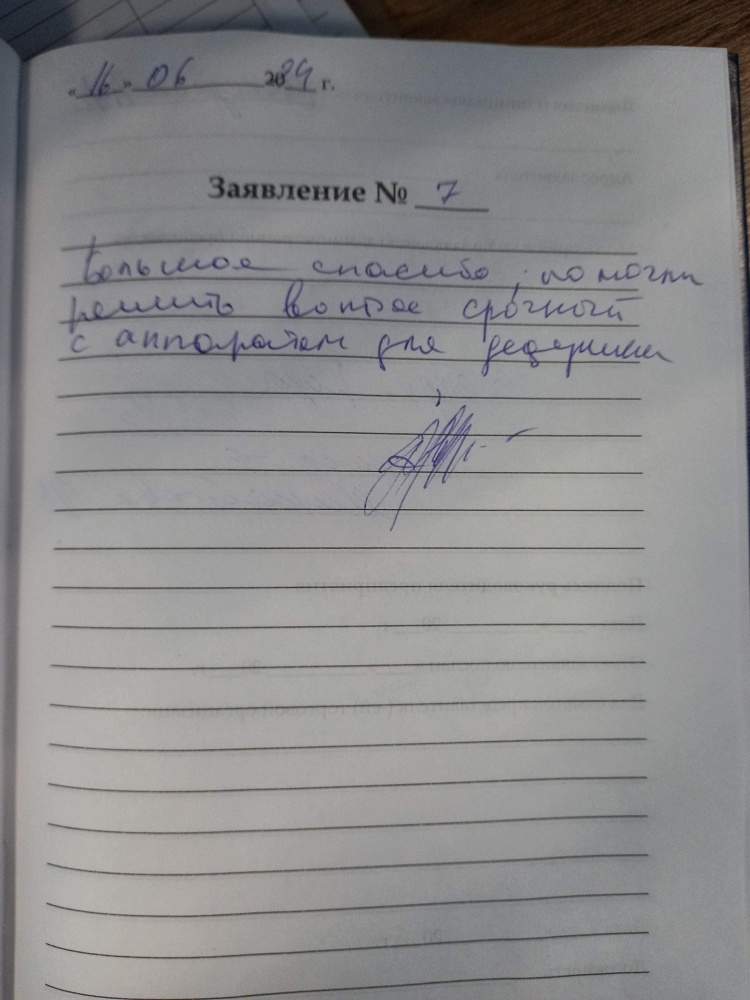 «16» 06 2024 г.
Заявление № 7
Большое спасибо, помогли
решить вопрос срочный
с аппаратом для дедушки